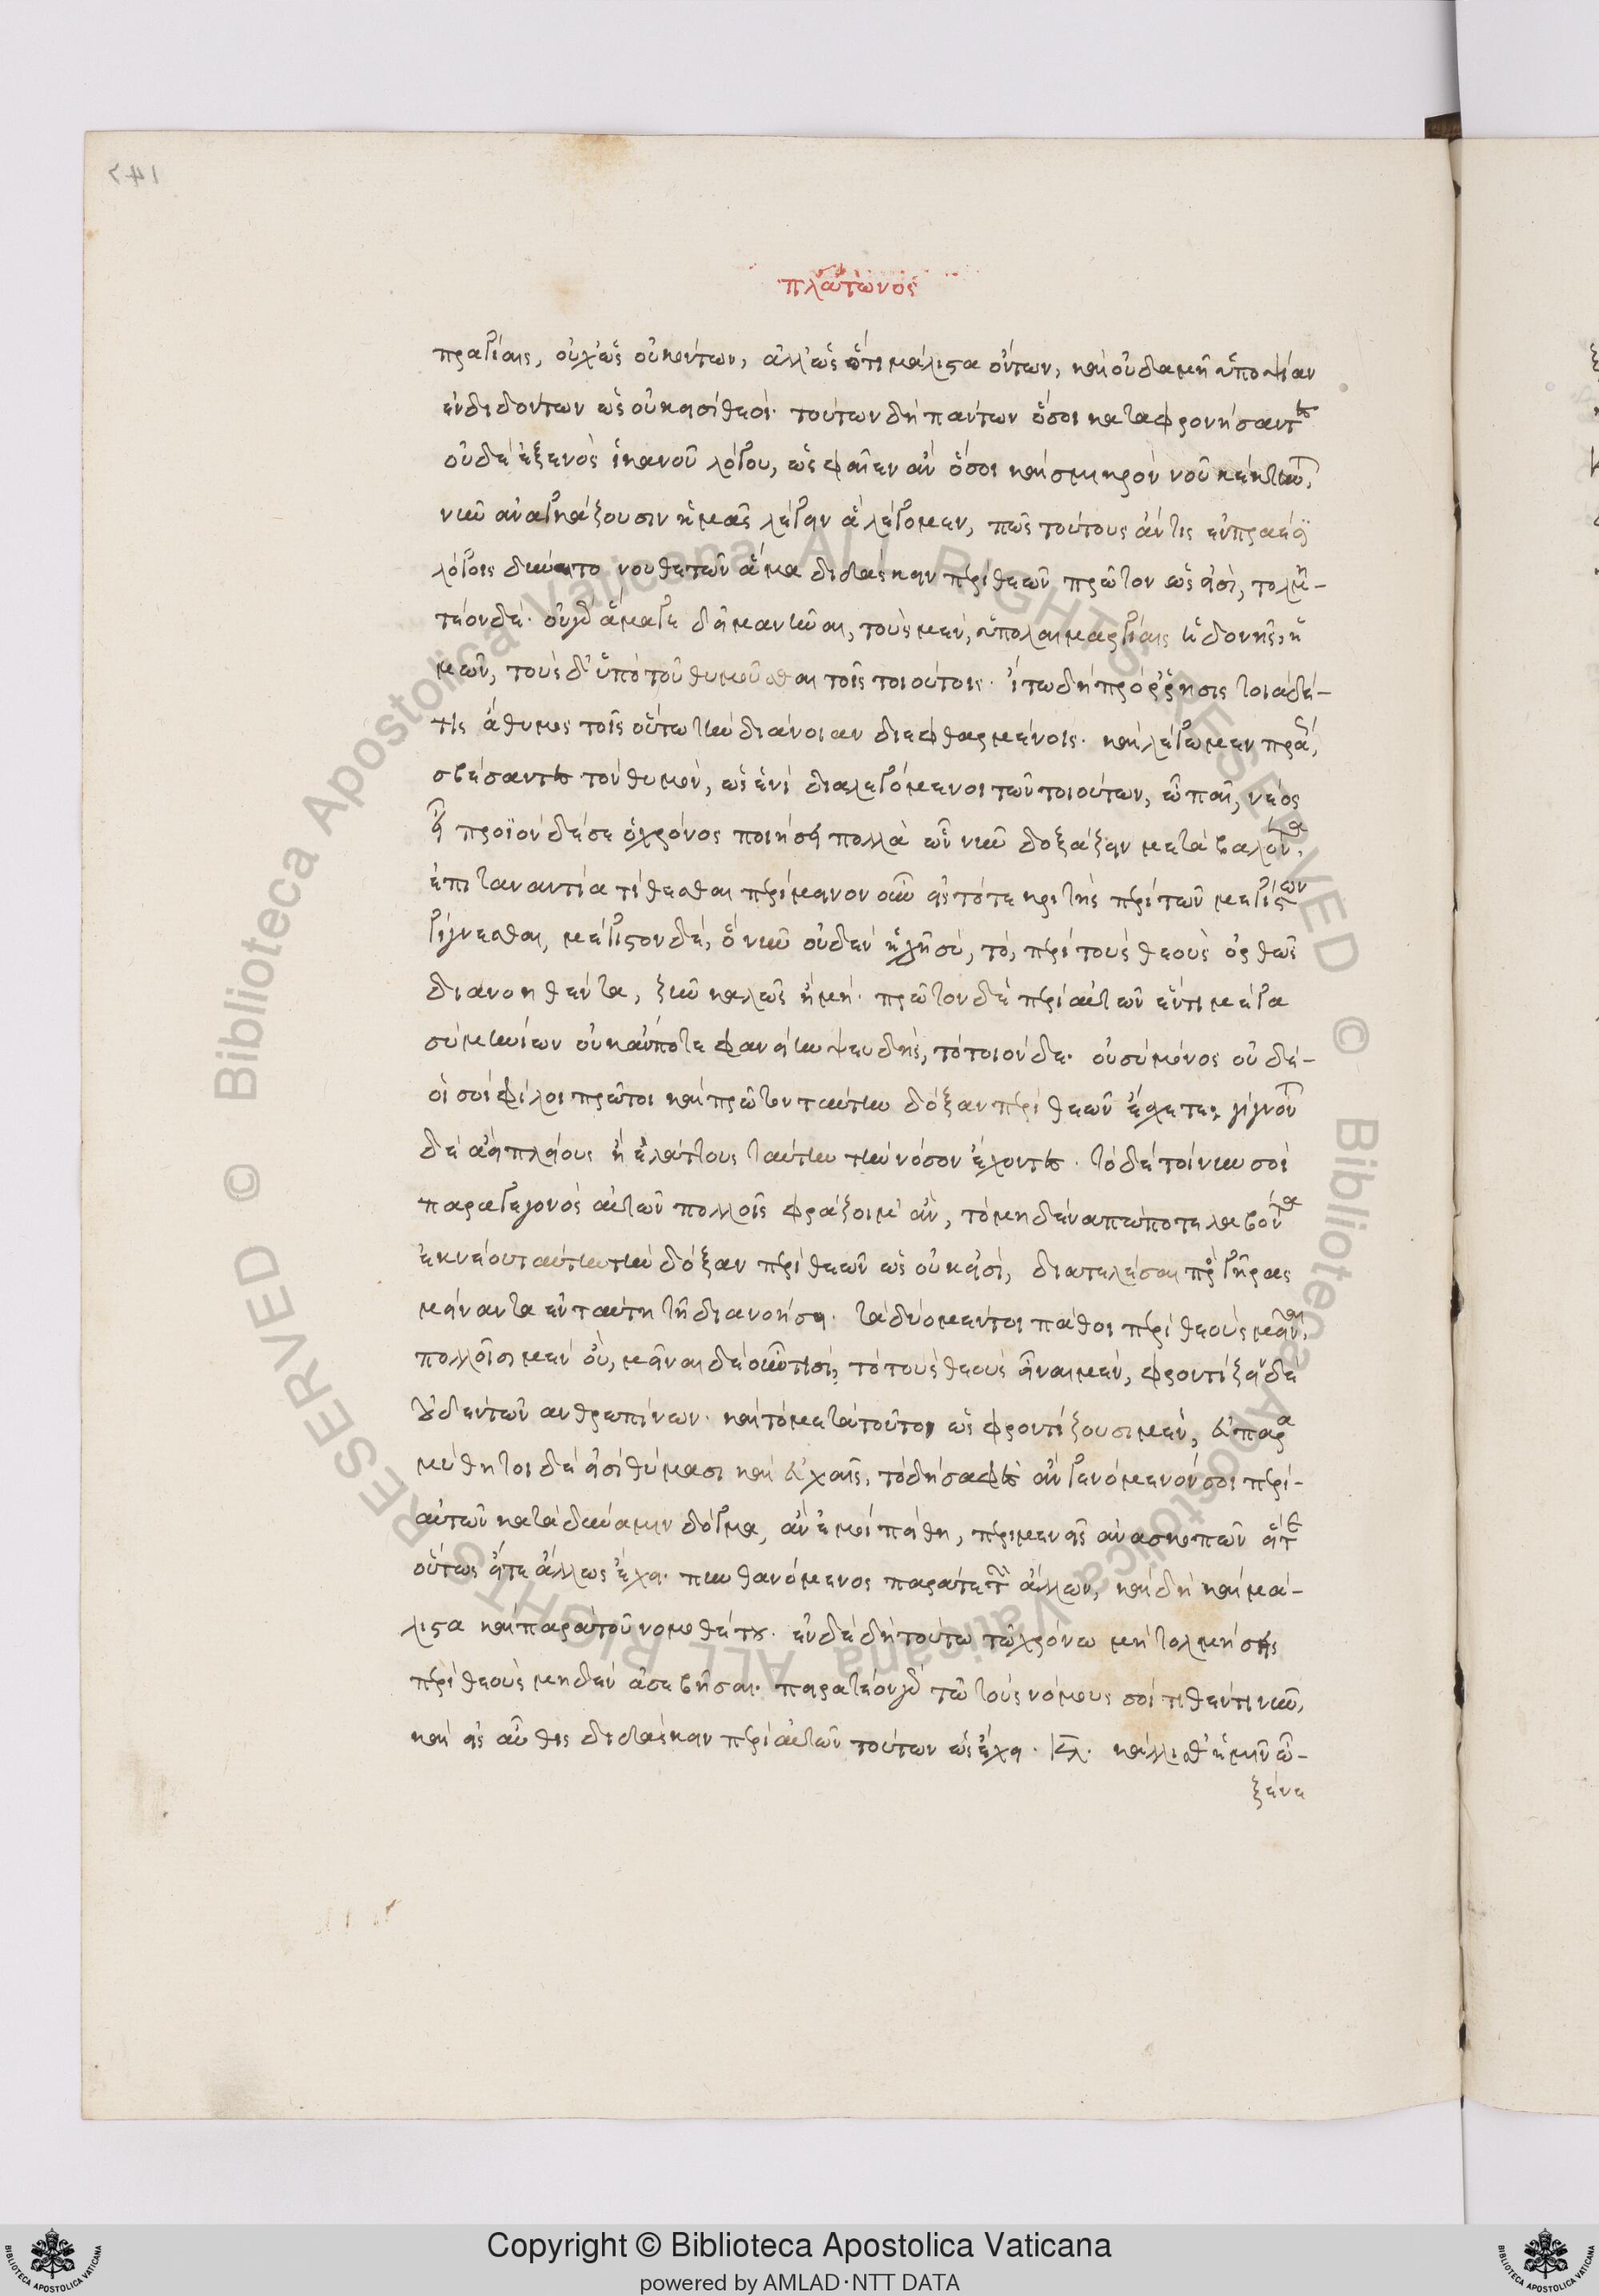 πλάτωνος
πραγίαις, οὐχ ὡς οὐκ ὄντων, ἀλλ' ὡς ὅτι μάλιστα ὄντων, καὶ οὐδαμῆ ὑποψίαν
ἐνδιδόντων ὡς οὐκ εἰσὶ θεοί· τούτων δὴ πάντων ὅσοι καταφρονήσαντες
οὐδὲ ἐξ ἑνὸς ἱκανοῦ λόγου, ὡς φαῖεν ἂν ὅσοι καὶ σμικρὸν νοῦ κέκτηνται,
νῦν ἀναγκάζουσιν ἡμᾶς λέγειν ἃ λέγομεν, πῶς τούτους ἄν τις ἐν πραέσι
λόγοις δύναιτο νουθετῶν ἅμα διδάσκειν περὶ θεῶν πρῶτον ὡς εἰσὶ, τολμη-
τέον δέ· οὐ γὰρ ἅμα γε δεῖ μανῆναι, τοὺς μὲν, ὑπὸ λαιμαργίαις ἡδονῆς, ἡ
μῶν, τοὺς δ' ὑπὸ τοῦ θυμοῦσθαι τοῖς τοιούτοις· ἴτω δὴ πρόρρησις τοιάδέ-
τις ἄθυμος τοῖς οὕτω τὴν διάνοιαν διεφθαρμένοις· καὶ λέγωμεν πρᾶοι,
σβέσαντες τὸν θυμὸν, ὡς ἑνὶ διαλεγόμενοι τῶν τοιούτων, ὦ παῖ, νέος
εἶ προϊὼν δέ σε ὁ χρόνος ποιήσει πολλὰ ὧν νῦν δοξάζειν μεταβαλόντα,
ἐπὶ τἀναντία τίθεσθαι περίμεινον οὖν εἰς τότε κριτὴς περὶ τῶν μεγίστων
γίγνεσθαι, μέγιστον δὲ, ὃ νῦν οὐδὲν ἡγῇ σὺ, τὸ, περὶ τοὺς θεοὺς ὀρθῶς
διανοηθέντα, ζῆν καλῶς ἢ μή· πρῶτον δὲ περὶ αὐτῶν ἕν τι μέγα
σοι μηνύων οὐκ ἄν ποτε φανείην ψευδὴς, τὸ τοιόνδε· οὐ σὺ μόνος οὐδὲ-
οἱ σοὶ φίλοι πρῶτοι καὶ πρῶτον ταύτην δόξαν περὶ θεῶν ἔσχετε, γίγνονται
δὲ ἀεὶ πλείους ἢ ἐλάττους ταύτην τὴν νόσον ἔχοντες· τόδε τοίνυν σοι
παραγεγονὸς αὐτῶν πολλοῖς φράζοιμ' ἂν, τὸ μηδένα πώποτε λαβόντα
ἐκ νέου ταύτην τὴν δόξαν περὶ θεῶν ὡς οὐκ εἰσὶ, διατελέσαι πρὸς γῆρας
μείναντα ἐν ταύτῃ τῇ διανοήσει· τὰ δύο μέντοι πάθοι περὶ θεοὺς μεῖναι,
πολλοῖσι μὲν οὒ, μεῖναι δὲ οὖν τισὶ, τὸ τοὺς θεοὺς εἶναι μὲν, φροντίζειν δὲ
οὐδὲν τῶν ἀνθρωπίνων· καὶ τὸ μετὰ τοῦτο, ὡς φροντίζουσι μὲν, εὐπαρα
μύθητοι δέ εἰσι θύμασι καὶ εὐχαῖς, τὸ δὴ σαφὲς ἂν γενόμενόν σοι περὶ-
αὐτῶν κατὰ δύναμιν δόγμα, ἂν ἐμοὶ πείθῃ, περιμενεῖς ἀνασκοπῶν εἴτε
οὕτως εἴτε ἄλλως ἔχει· πυνθανόμενος παρά τε τῶν ἄλλων, καὶ δὴ καὶ μά-
λιστα καὶ παρὰ τοῦ νομοθέτου· ἐν δὲ δὴ τούτω τῶ χρόνω μὴ τολμήσῃς
περὶ θεοὺς μηδὲν ἀσεβῆσαι· πειρατέον γὰρ τῶ τοὺς νόμους σοι τιθέντι νῦν,
καὶ εἰς αὖθις διδάσκειν περὶ αὐτῶν τούτων ὡς ἔχει· κλ. κάλλισθ' ἡμῖν ὦ-
ξένε